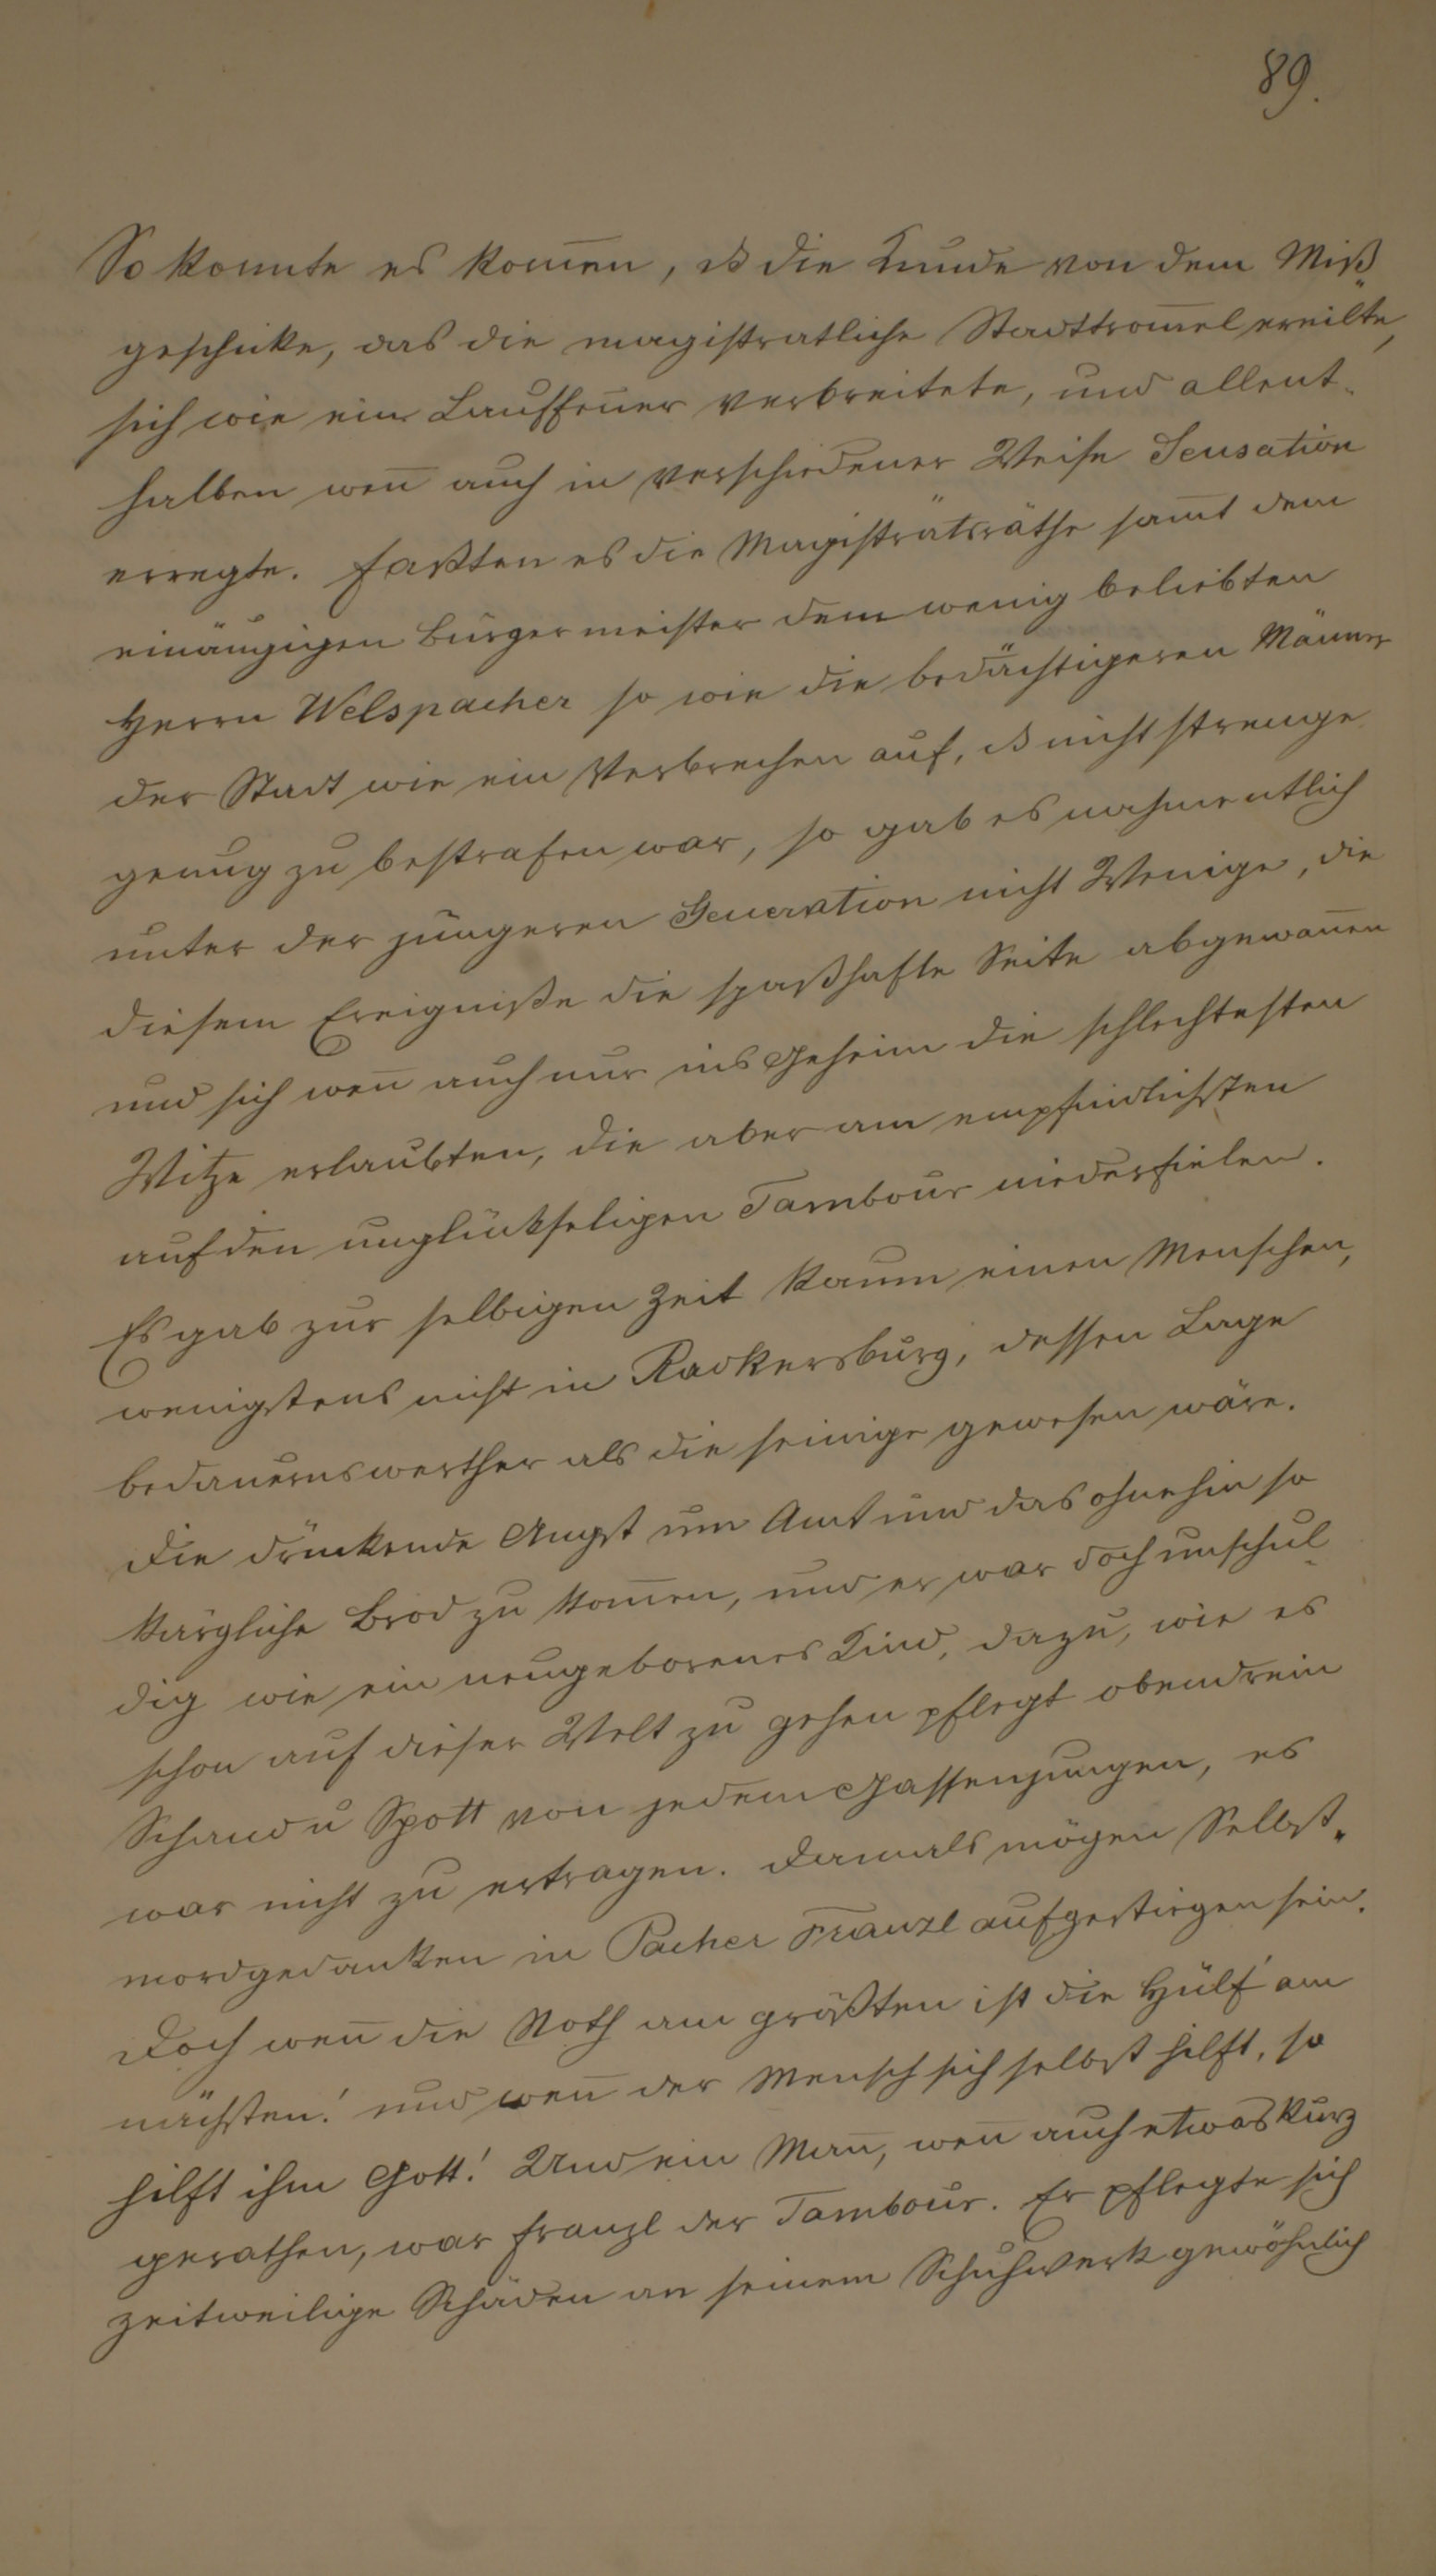 89.
So konnte es kom̅en, ds die Kunde von dem Miß„
geschicke, das die magistratliche Stadttrom̅el ereilte,
sich wie ein Lauffeuer verbreitete, und allent„
halben wen̅ auch in verschiedener Weise Sensation
erregte. Faßten es die Magistratsräthe sam̅t dem
einäugigen Bürgermeister dem wenig beliebten
Herrn Welspacher so wie die bedächtigeren Männer
der Stadt wie ein Verbrechen auf, ds nicht strenge
genug zu bestrafen war, so gab es nahmentlich
unter der jüngeren Generation nicht Wenige, die
diesem Ereigniße die spaßhafte Seite abgewan̅en
und sich wen̅ auch nur ins Geheim die schlechtesten
Witze erlaubten, die aber am empfindlichsten
auf den unglückseligen Tambour niederfielen.
Es gab zur selbigen Zeit kaum einen Menschen,
wenigstens nicht in Radkersburg, dessen Lage
bedauernswerther als die seinige gewesen wäre.
Die drückende Angst um Amt und das ohnehin so
kärgliche Brod zu kom̅en, und er war doch unschul„
dig wie ein neugeborenes Kind, dazu, wie es
schon auf dieser Welt zu gehen pflegt obendrein
Schand u Spott von jedem Gassenjungen, es
war nicht zu ertragen. Damals mögen Selbst„
mordgedanken in Pacher Franzl aufgestiegen sein.
Doch wen̅ die Noth am größten ist die Hülf' am
nächsten! und wen̅ der Mensch sich selbst hilft, so
hilft ihm Gott! Und ein Man̅, wen̅ auch etwas kurz
gerathen, war Franzl der Tambour. Er pflegte sich
zeitweilige Schäden an seinem Schuhwerk gewöhnlich